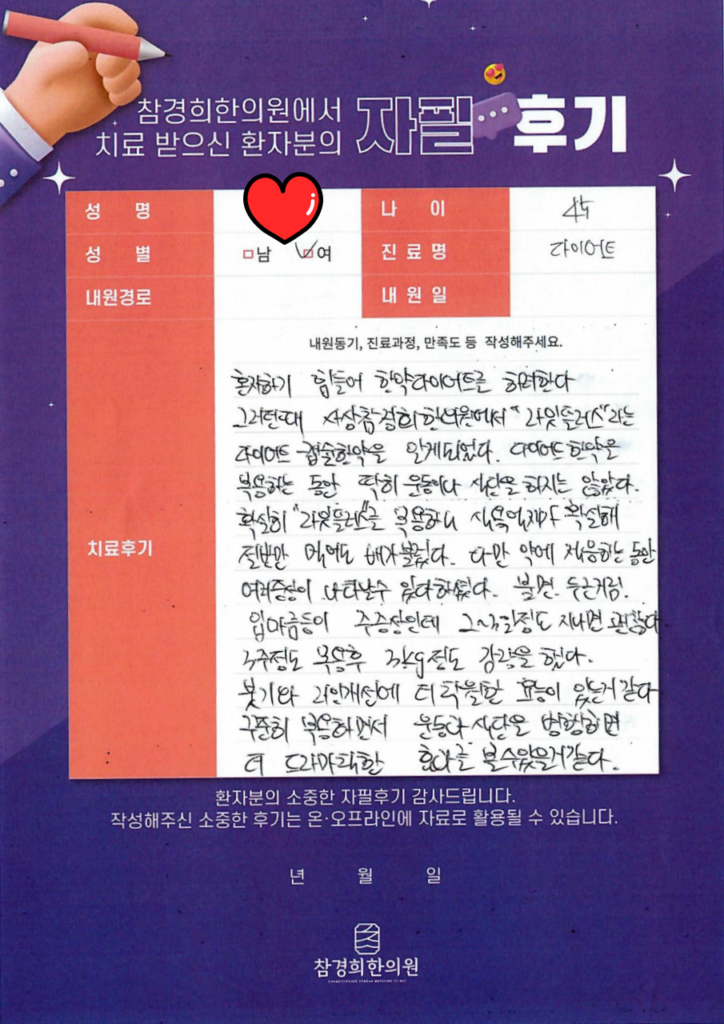 참경희한의원에서
치료 받으신 환자분의 자필 후기
성 명
나 이 45
성 별 □남 □여
진료명 다이어트
내원경로
내원일
내원동기, 진료과정, 만족도 등 작성해주세요.
치료후기
혼자하기 힘들어 한약다이어트를 하려한다
그러던때 사상참경희한의원에서 "라잇플러스"라는
다이어트 캡슐한약을 알게되었다. 다이어트한약을
복용하는 동안 딱히 운동이나 식단을 하지는 않았다.
확실히 "라잇플러스"를 복용하니 식욕억제가 확실해
절반만 먹어도 배가불렀다. 다만 약에 적응하는동안
여러증상이 나타날수 있다하셨다. 불면. 두근거림.
입마름등이 주증상인데 정도 지나면 괜찮다.
3주정도 복용후 3kg정도 감량을 했다.
붓기와 라인개선에 더 탁월한 효능이 있는거같다
꾸준히 복용하면서 운동과 식단을 병행하면
더 드라마틱한 효과를 볼수있을거같다.
환자분의 소중한 자필후기 감사드립니다.
작성해주신 소중한 후기는 온·오프라인에 자료로 활용될 수 있습니다.
년 월 일
참경희한의원